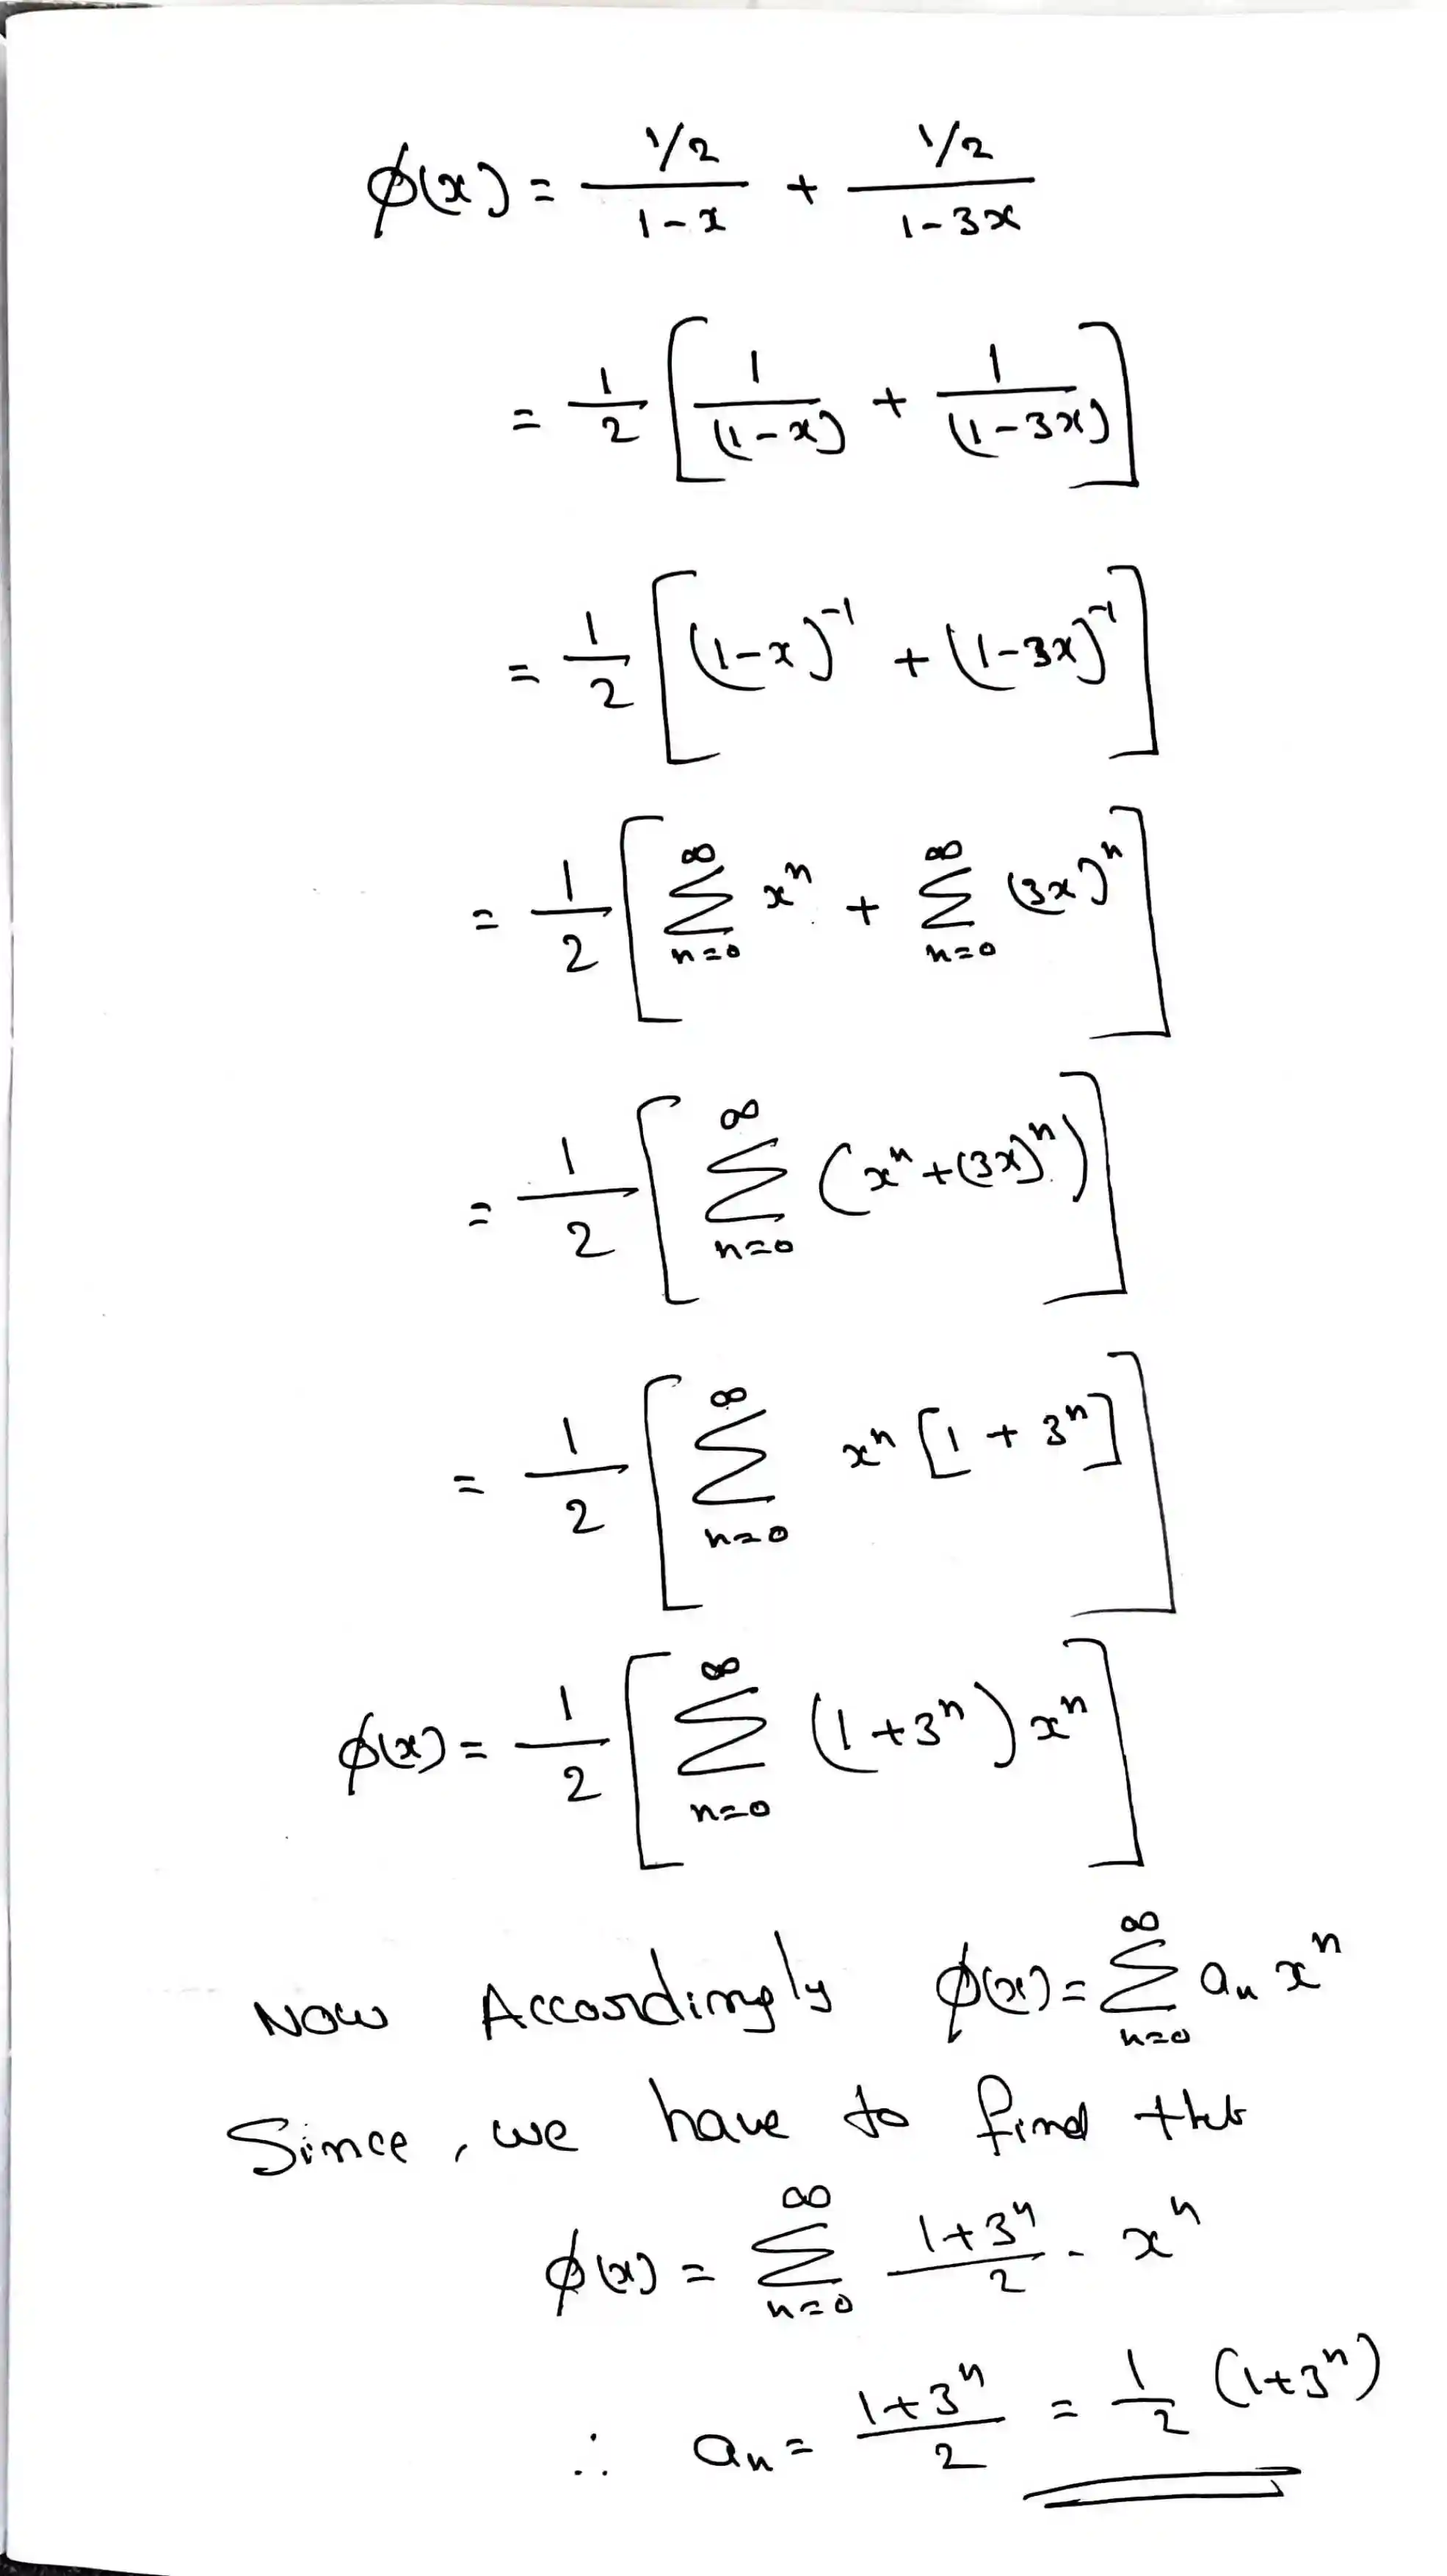 φ(x) = (1/2)/(1-x) + (1/2)/(1-3x)
= 1/2 [1/(1-x) + 1/(1-3x)]
= 1/2 [(1-x)⁻¹ + (1-3x)⁻¹]
= 1/2 [∑_{n=0}^{∞} xⁿ + ∑_{n=0}^{∞} (3x)ⁿ]
= 1/2 [∑_{n=0}^{∞} (xⁿ+(3x)ⁿ)]
= 1/2 [∑_{n=0}^{∞} xⁿ [1 + 3ⁿ]]
φ(x) = 1/2 [∑_{n=0}^{∞} (1+3ⁿ) xⁿ]
Now Accordingly φ(x) = ∑_{n=0}^{∞} aₙ xⁿ
Since, we have to find
φ(x) = ∑_{n=0}^{∞} (1+3ⁿ)/2 · xⁿ
∴ aₙ = (1+3ⁿ)/2 = 1/2 (1+3ⁿ)